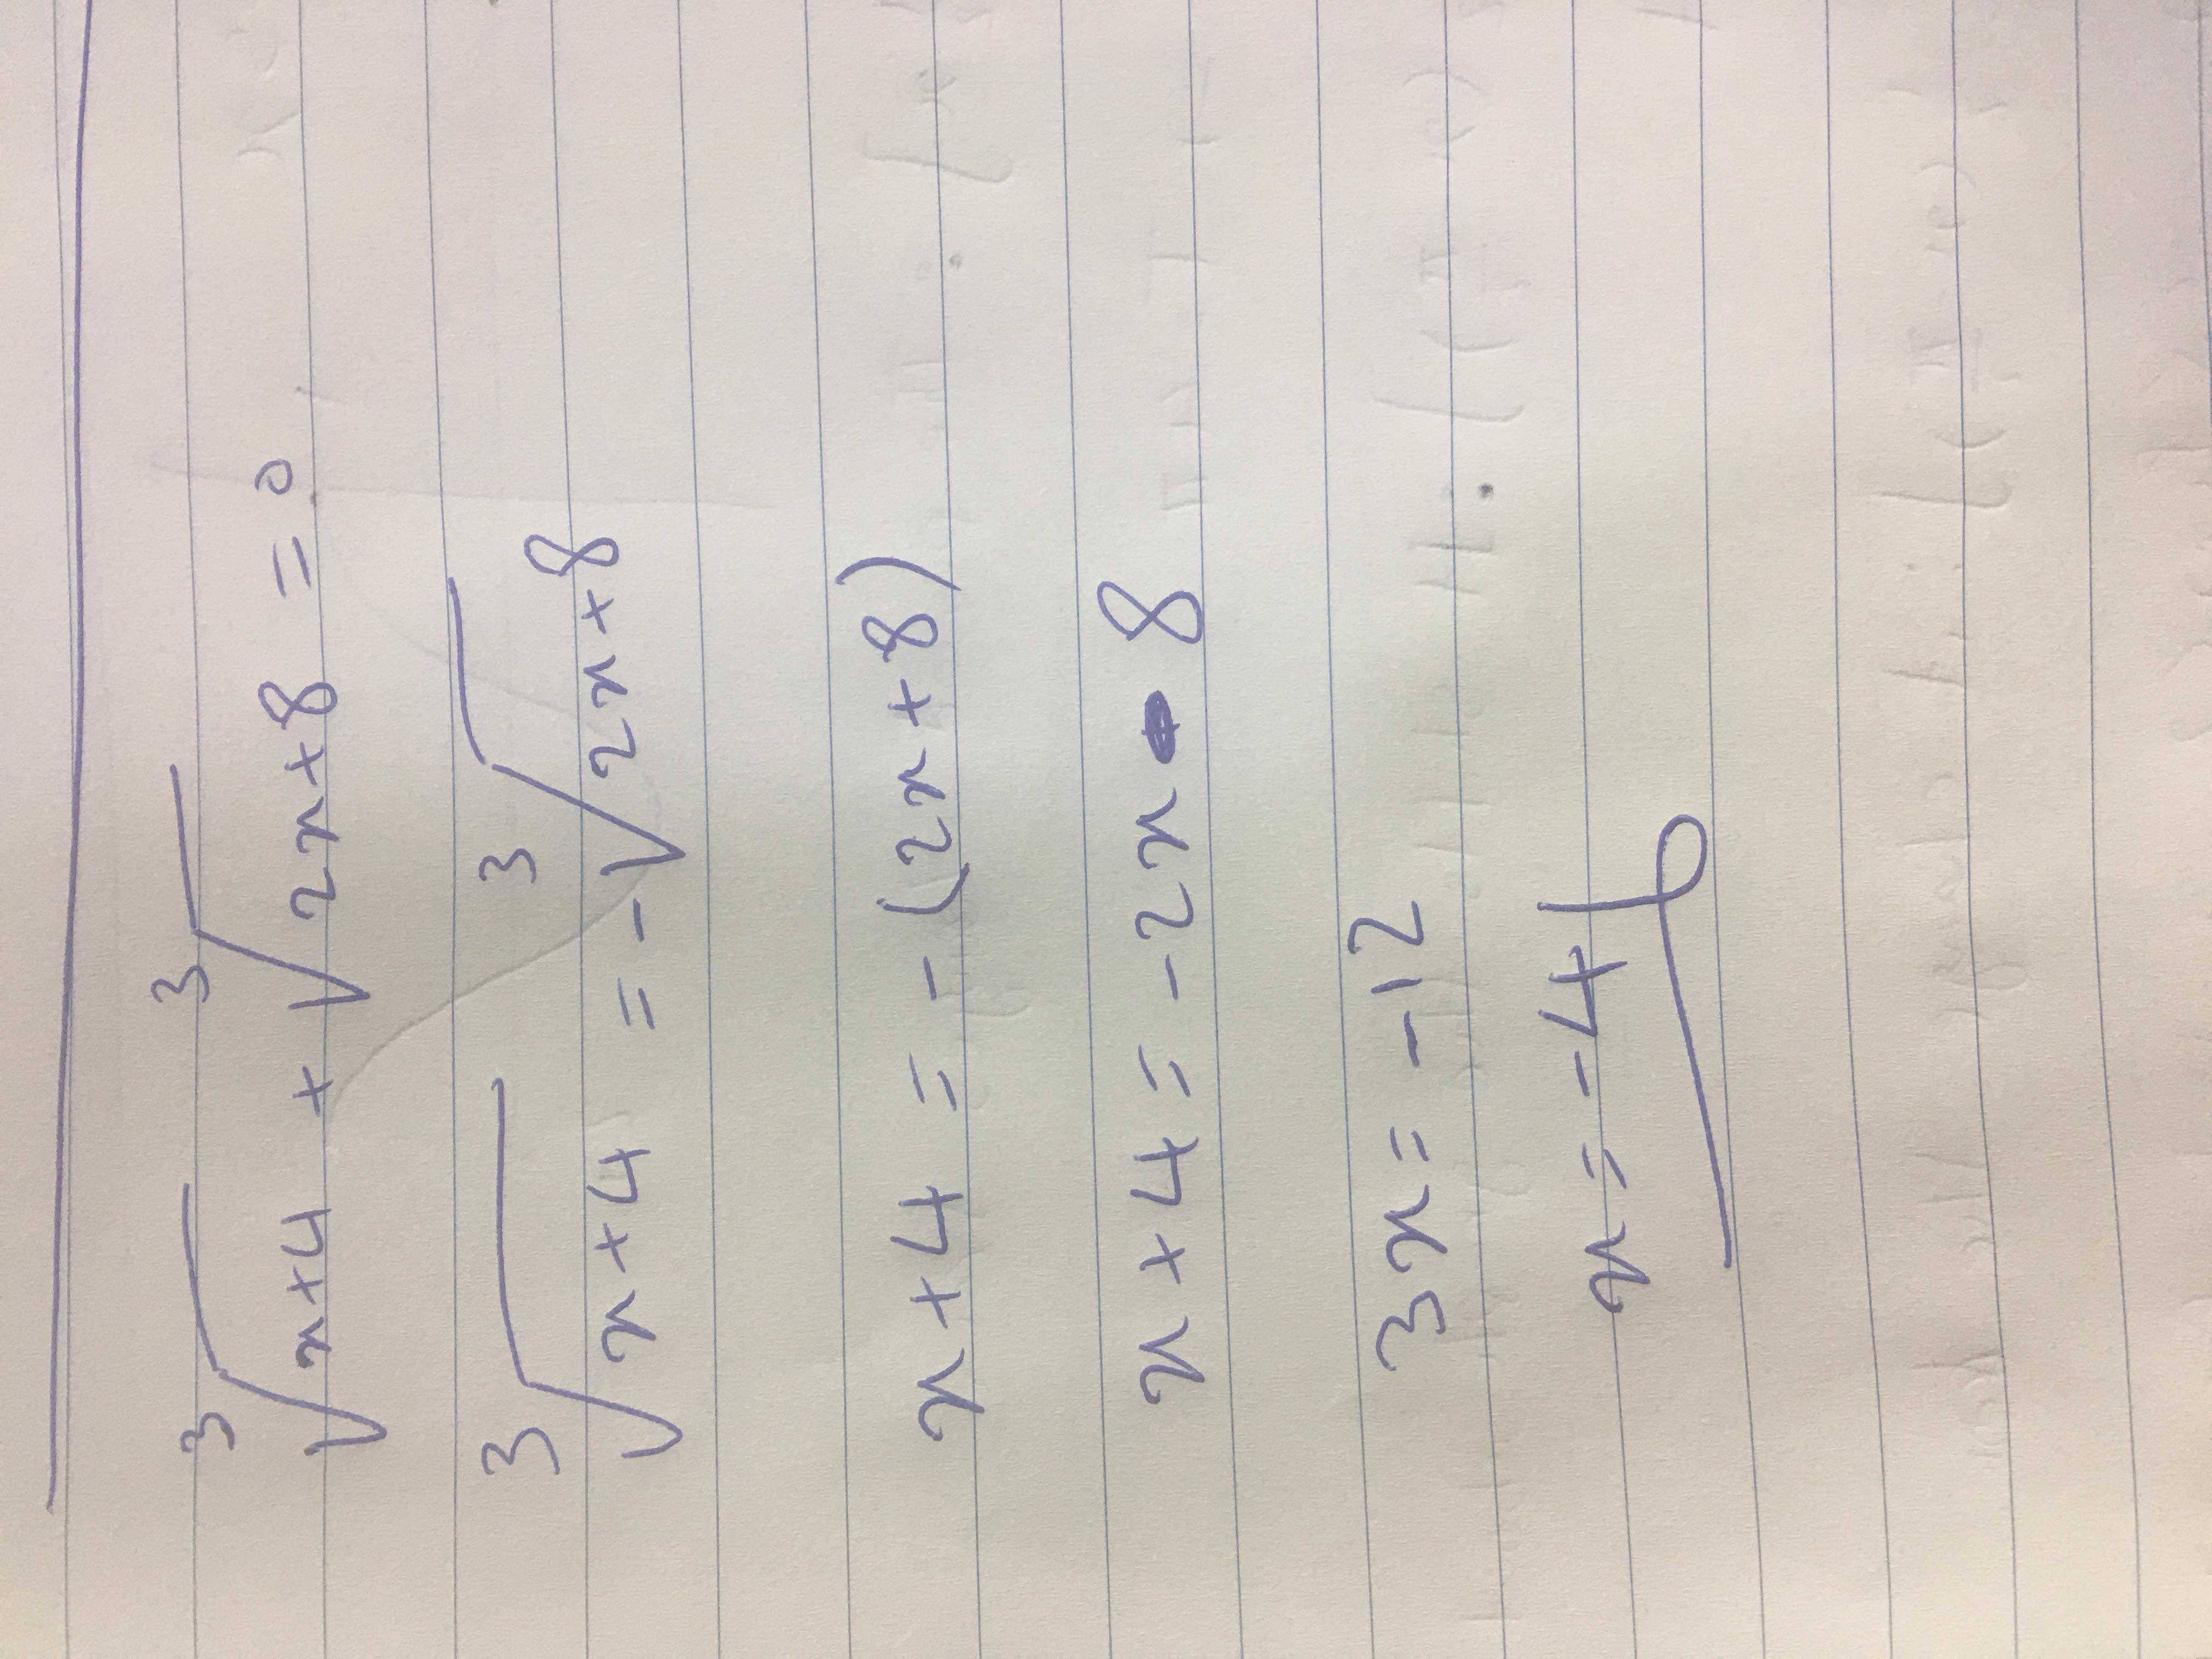 ∛(x+4) + ∛(2x+8) = 0
∛(x+4) = -∛(2x+8)
x+4 = -(2x+8)
x+4 = -2x 8
3x = -12
x = -4